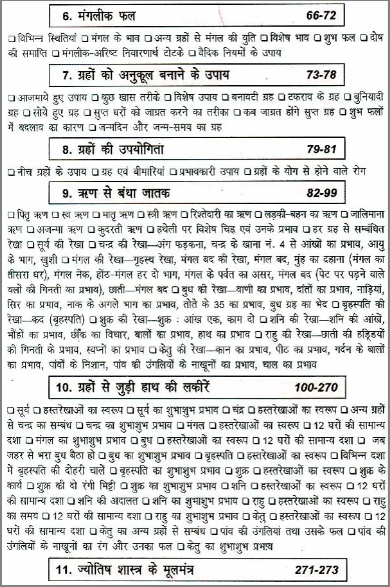 6. मंगलीक फल 66-72
❑ विभिन्न स्थितियां ❑ मंगल के भाव ❑ अन्य ग्रहों से मंगल की युति ❑ विशेष भाव ❑ शुभ फल ❑ दोष
की समाप्ति ❑ मंगलीक-अरिष्ट निवारणार्थ टोटके ❑ वैदिक नियमों के उपाय
7. ग्रहों को अनुकूल बनाने के उपाय 73-78
❑ आजमाये हुए उपाय ❑ कुछ खास तरीके ❑ विशेष उपाय ❑ बनावटी ग्रह ❑ टकराव के ग्रह ❑ बुनियादी
ग्रह ❑ सोये हुए ग्रह ❑ सुप्त घरों को जाग्रत करने का तरीका ❑ कब जाग्रत होंगे सुप्त ग्रह ❑ शुभ फलों
में बदलाव का कारण ❑ जन्मदिन और जन्म-समय का ग्रह
8. ग्रहों की उपयोगिता 79-81
❑ नीच ग्रहों के उपाय ❑ ग्रह एवं बीमारियां ❑ प्रभावकारी उपाय ❑ ग्रहों के योग से होने वाले रोग
9. ऋण से बंधा जातक 82-99
❑ पितृ ऋण ❑ स्व ऋण ❑ मातृ ऋण ❑ स्त्री ऋण ❑ रिश्तेदारी का ऋण ❑ लड़की-बहन का ऋण ❑ जालिमाना
ऋण ❑ अजन्मा ऋण ❑ कुदरती ऋण ❑ हथेली पर विशेष चिह्न एवं उनके प्रभाव ❑ हर ग्रह से सम्बंधित
रेखा ❑ सूर्य की रेखा ❑ चन्द्र की रेखा—अंग फड़कना, चन्द्र के खाना नं. 4 से आंखों का प्रभाव, आयु
के भाग, खुशी ❑ मंगल की रेखा—गृहस्थ रेखा, मंगल बद की रेखा, मंगल बद, मुंह का दहाना (मंगल का
तीसरा घर), मंगल नेक, होंठ-मंगल हर दो भाग, मंगल के पर्वत का असर, मंगल बद (पेट पर पड़ने वाले
बलों की गिनती का प्रभाव), छाती—मंगल बद ❑ बुध की रेखा—वाणी का प्रभाव, दांतों का प्रभाव, नाड़ियां,
सिर का प्रभाव, नाक के अगले भाग का प्रभाव, तोते के 35 का प्रभाव, बुध ग्रह का भेद ❑ बृहस्पति की
रेखा—कद (बृहस्पति) ❑ शुक्र की रेखा—शुक्र : आंख एक, काम दो ❑ शनि की रेखा—शनि की आंखें,
भौंहों का प्रभाव, छींक का विचार, बालों का प्रभाव, हाथ का प्रभाव ❑ राहु की रेखा—छाती की हड्डियों
की गिनती के प्रभाव, स्वप्नों का प्रभाव ❑ केतु की रेखा—कान का प्रभाव, पीठ का प्रभाव, गर्दन के बालों
का प्रभाव, पांवों के निशान, पांव की उंगलियों के नाखूनों का प्रभाव, चाल का प्रभाव
10. ग्रहों से जुड़ी हाथ की लकीरें 100-270
❑ सूर्य ❑ हस्तरेखाओं का स्वरूप ❑ सूर्य का शुभाशुभ प्रभाव ❑ चंद्र ❑ हस्तरेखाओं का स्वरूप ❑ अन्य ग्रहों
से चन्द्र का सम्बंध ❑ चन्द्र का शुभाशुभ प्रभाव ❑ मंगल ❑ हस्तरेखाओं का स्वरूप ❑ 12 घरों की सामान्य
दशा ❑ मंगल का शुभाशुभ प्रभाव ❑ बुध ❑ हस्तरेखाओं का स्वरूप ❑ 12 घरों की सामान्य दशा ❑ जब
जहर से भरा बुध बैठा हो ❑ बुध का शुभाशुभ प्रभाव ❑ बृहस्पति ❑ हस्तरेखाओं का स्वरूप ❑ विभिन्न दशा
में बृहस्पति की दोहरी चालें ❑ बृहस्पति का शुभाशुभ प्रभाव ❑ शुक्र ❑ हस्तरेखाओं का स्वरूप ❑ शुक्र के
कार्य ❑ शुक्र की दो रंगी मिट्टी ❑ शुक्र का शुभाशुभ प्रभाव ❑ शनि ❑ हस्तरेखाओं का स्वरूप ❑ 12 घरों
की सामान्य दशा ❑ शनि की अदालत ❑ शनि का शुभाशुभ प्रभाव ❑ राहु ❑ हस्तरेखाओं का स्वरूप ❑ राहु
का समय ❑ 12 घरों की सामान्य दशा ❑ राहु का शुभाशुभ प्रभाव ❑ केतु ❑ हस्तरेखाओं का स्वरूप ❑ 12
घरों की सामान्य दशा ❑ केतु का अन्य ग्रहों से सम्बंध ❑ पांव की उंगलियां तथा उसके फल ❑ पांव की
उंगलियों के नाखूनों का रंग और उनका फल ❑ केतु का शुभाशुभ प्रभाव
11. ज्योतिष शास्त्र के मूलमंत्र 271-273